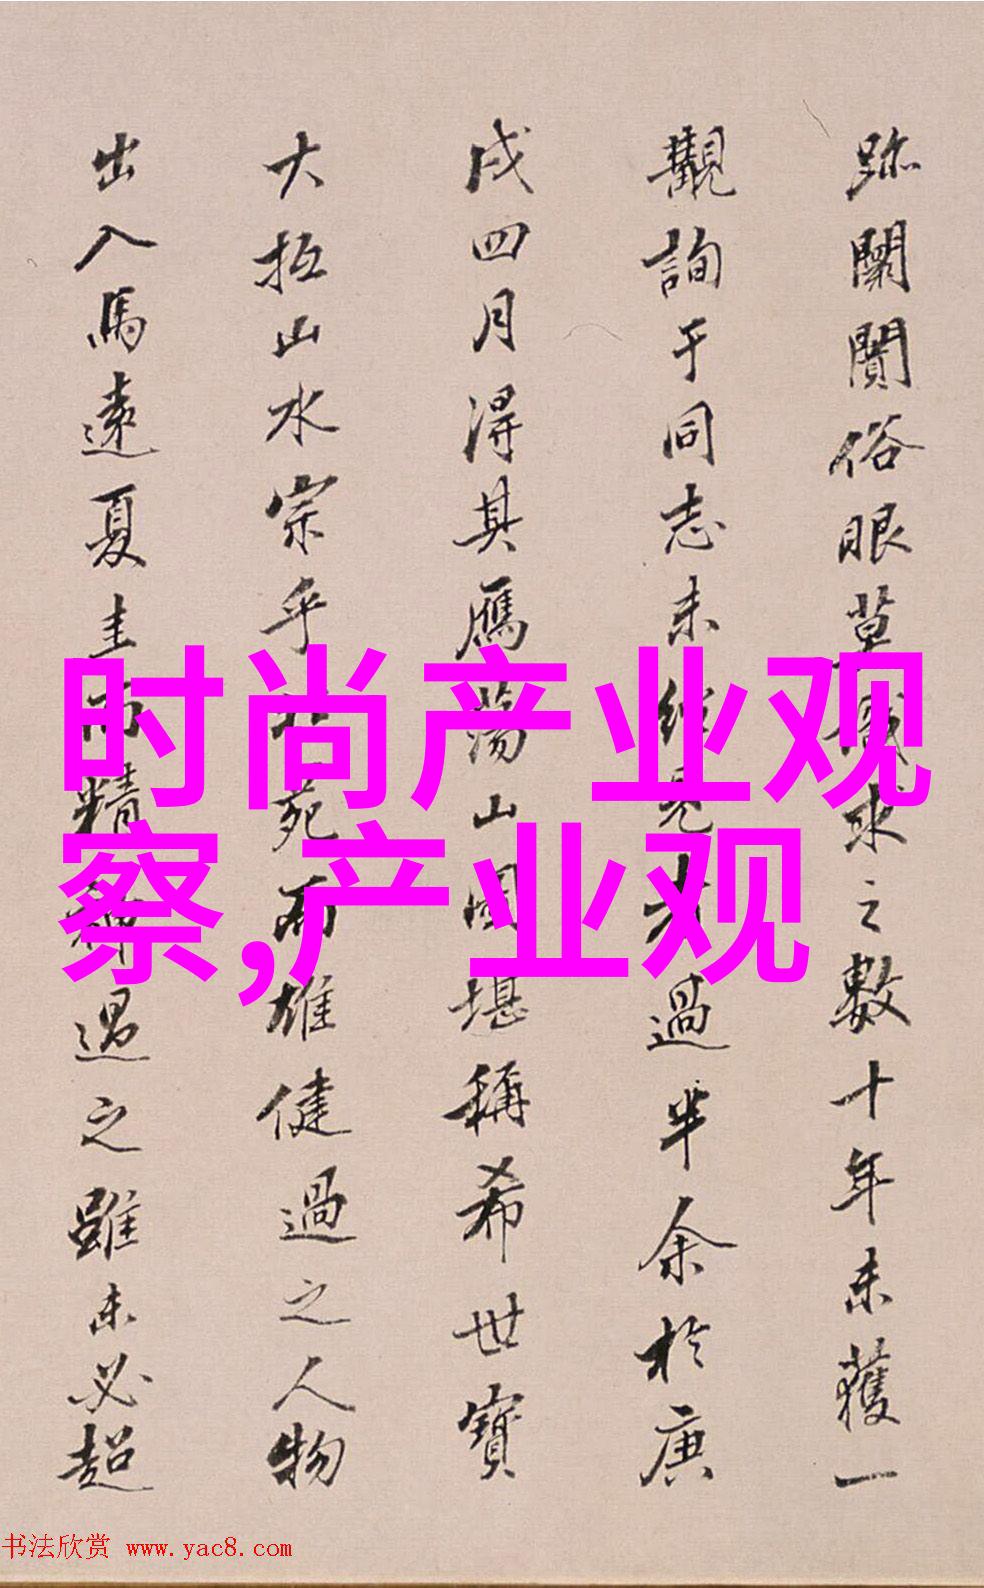 跡闤闠俗眼草識求之數十年未獲一
觀詢于同志未經見者過半余於庚
戌四月得其鴈蕩山圖堪稱希世寶
大抵山水宗乎北苑而雄健過之人物
出入馬遠夏圭而精神過之雖未必超
时尚产业观
察,产业观
书法欣赏 www.yac8.com